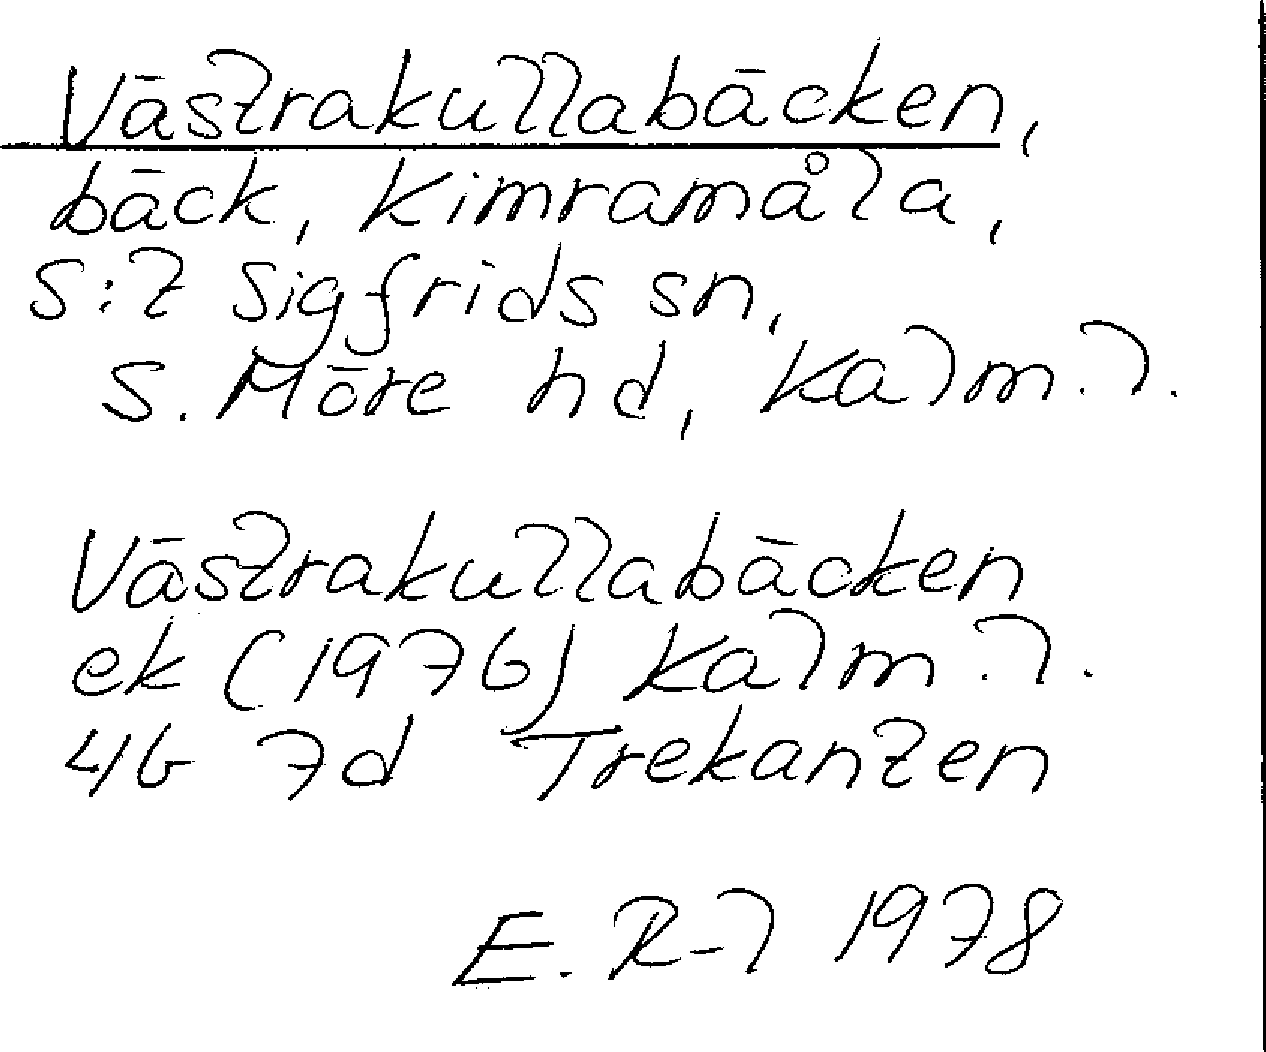 Västrakullabäcken,
bäck, Kimramåla,
S:t Sigfrids sn,
S. Möre hd, Kalm. l.
Västrakullabäcken
ek (1976) Kalm. l.
4G 7d Trekanten
E. R-l 1978